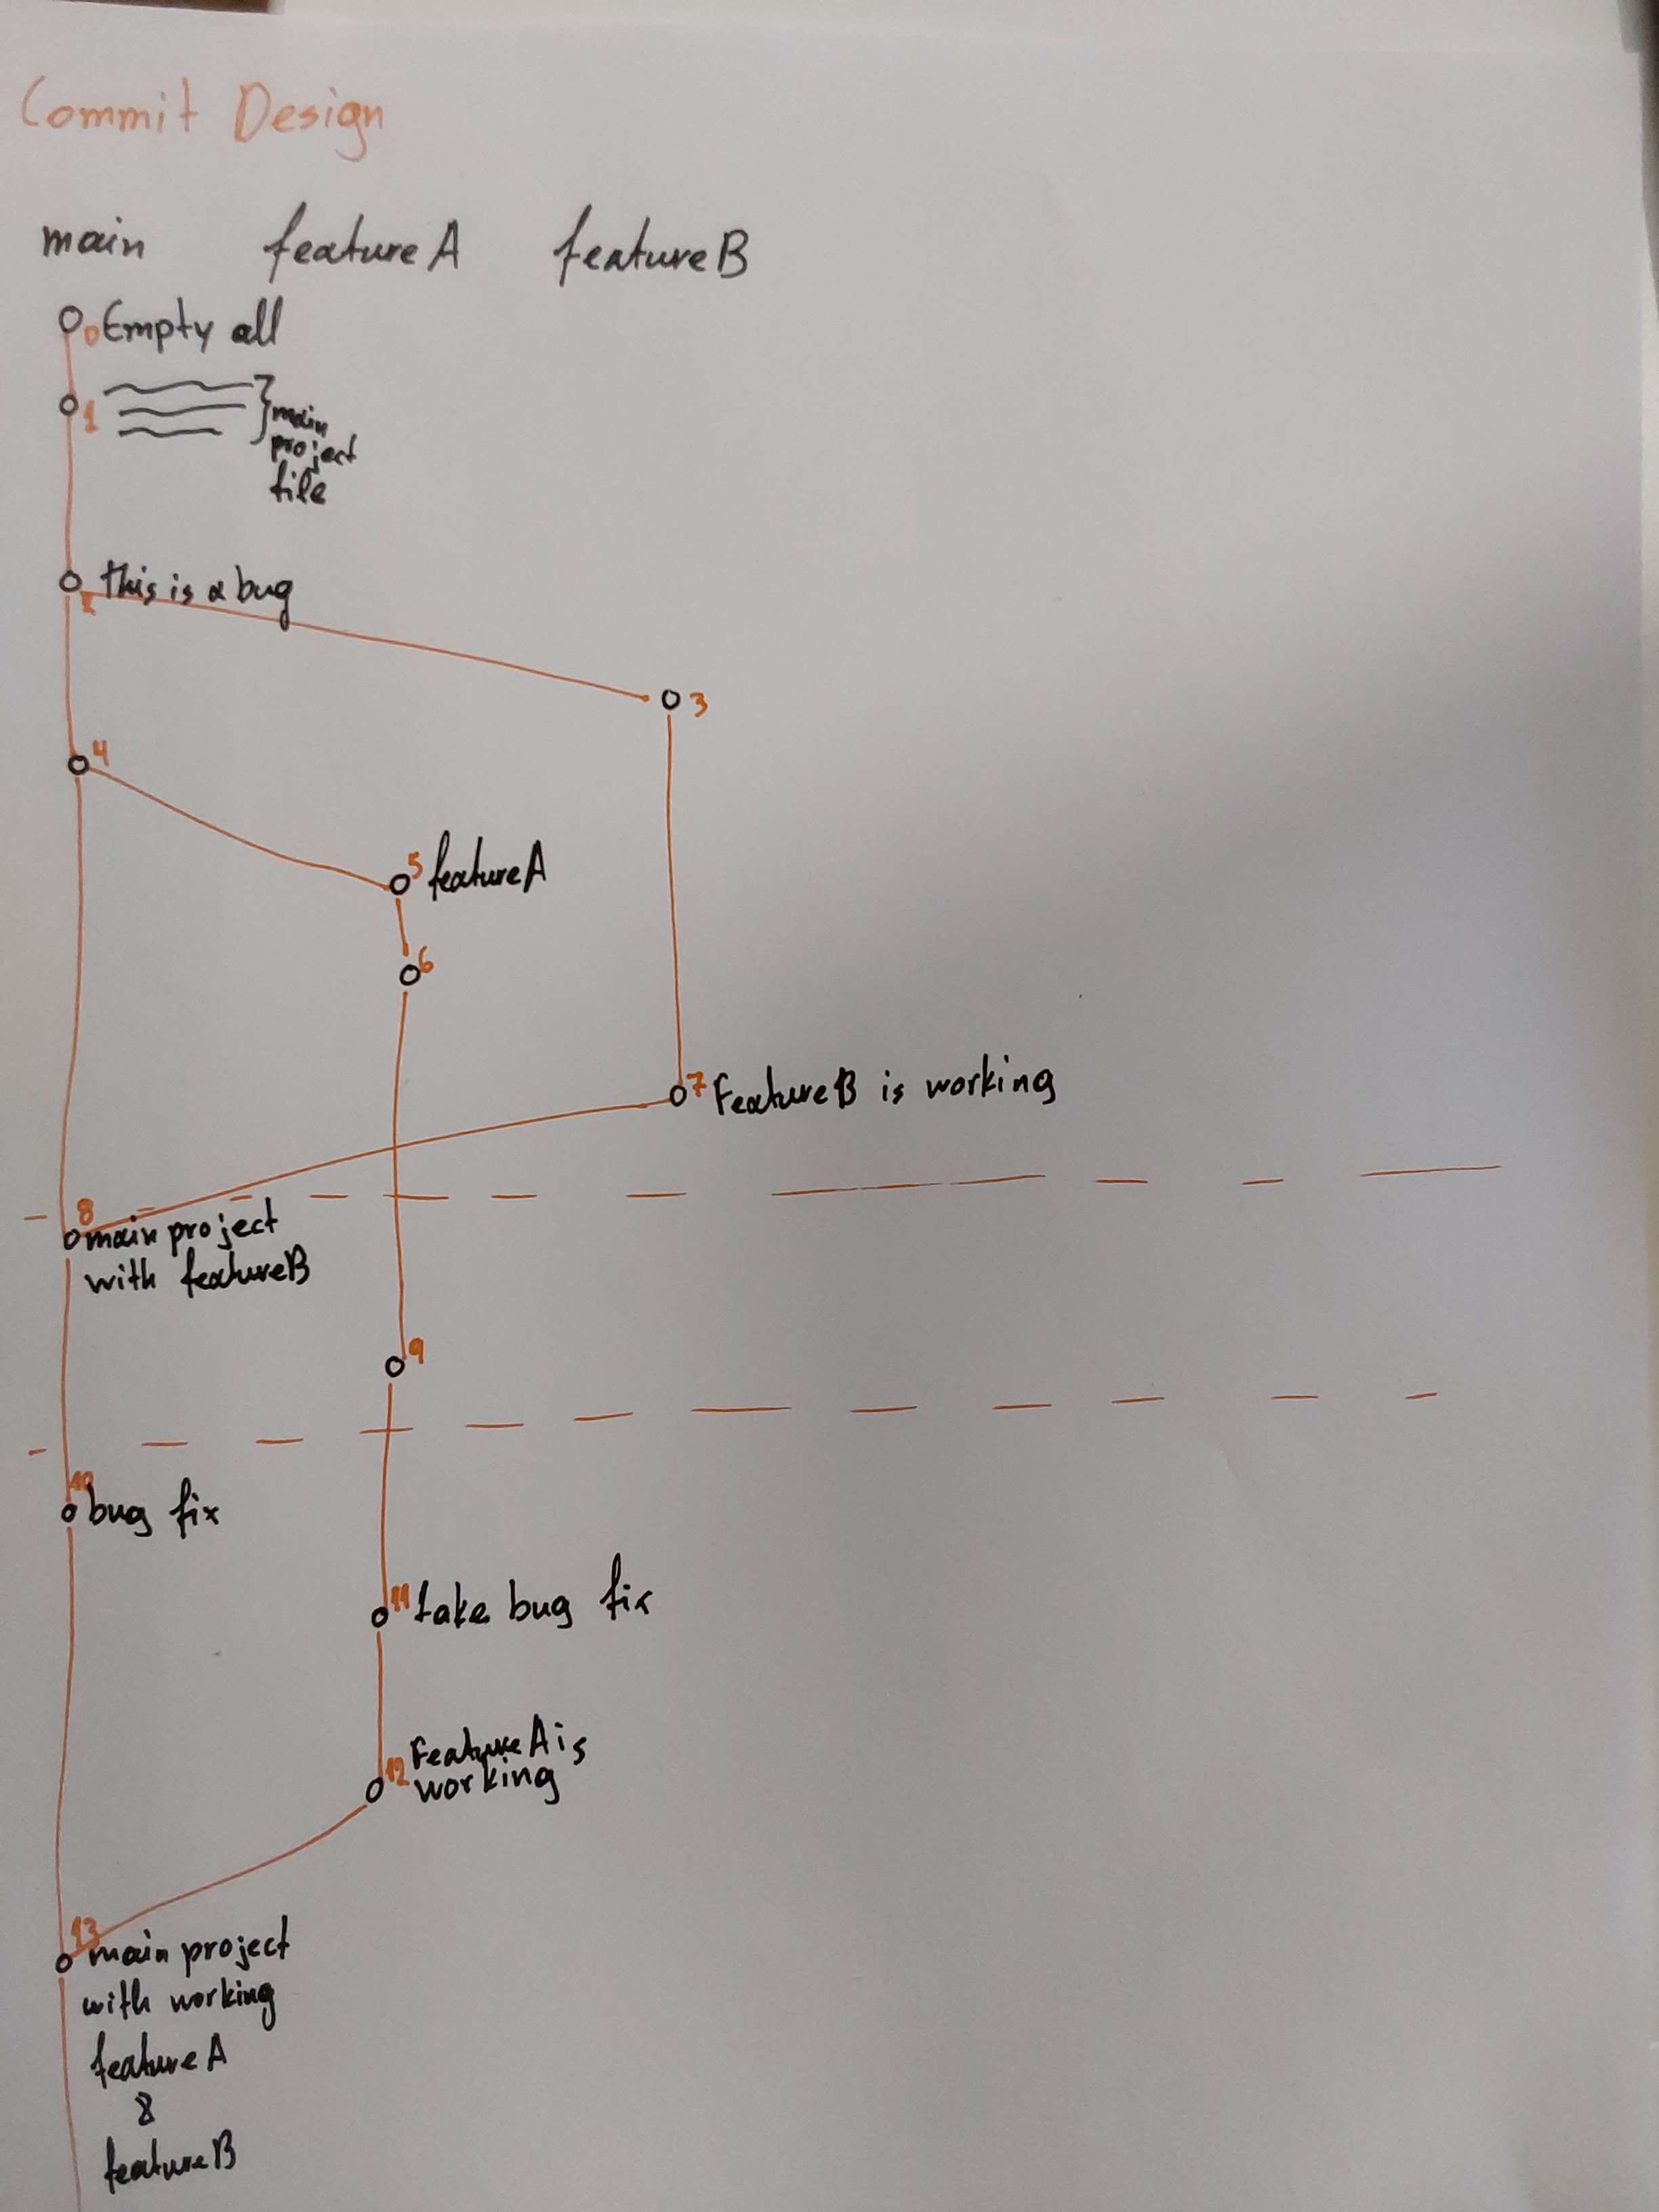 Commit Design
main featureA featureB
0 Empty all
1
main
project
file
2 this is a bug
3
4
5 featureA
6
7 FeatureB is working
8
main project
with featureB
9
10
bug fix
11 take bug fix
FeatureA is
12 working
13
main project
with working
featureA
&
featureB